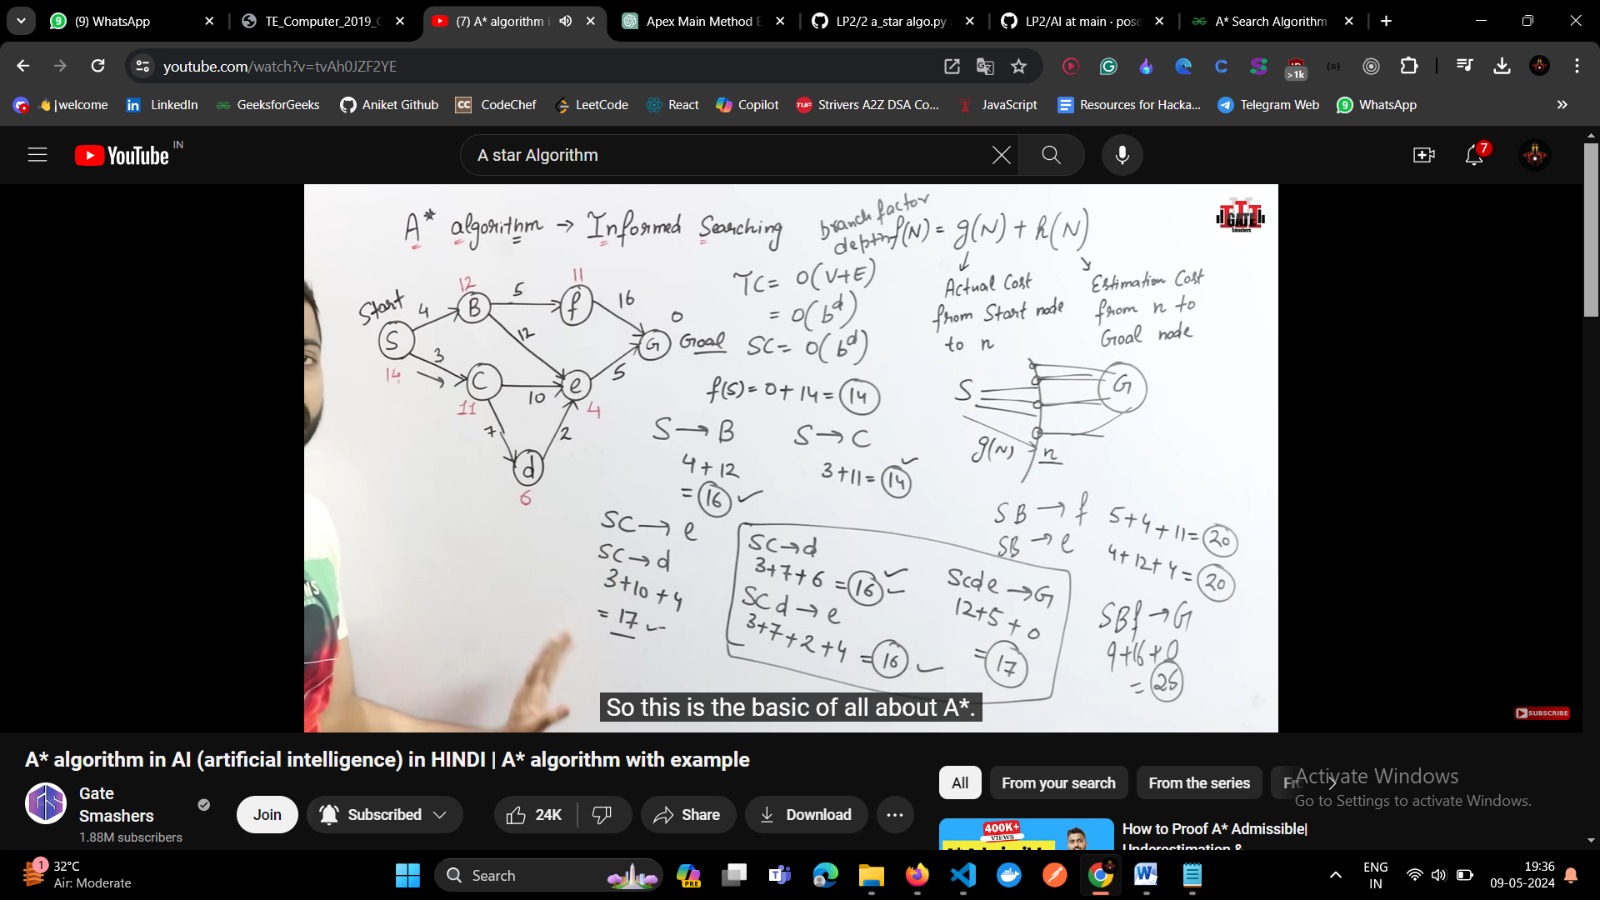 (9) WhatsApp
TE_Computer_2019_C
(7) A* algorithm i
Apex Main Method E
LP2/2 a_star algo.py
LP2/AI at main · pose
A* Search Algorithm
youtube.com/watch?v=tvAh0JZF2YE
>1k
|welcome
LinkedIn
GeeksforGeeks
Aniket Github
CodeChef
LeetCode
React
Copilot
Strivers A2Z DSA Co...
JavaScript
Resources for Hacka...
Telegram Web
WhatsApp
YouTube IN
A star Algorithm
7
A* algorithm → Informed Searching
branch factor
depth
f(N) = g(N) + h(N)
Actual Cost
from Start node
to n
Estimation Cost
from n to
Goal node
TC = O(V+E)
= O(b^d)
SC = O(b^d)
Start
S
14
4
3
12
B
5
11
f
16
12
G
0
Goal
C
11
10
e
4
5
7
2
d
6
f(S) = 0 + 14 = 14
S → B
4 + 12
= 16 ✓
S → C
3 + 11 = 14 ✓
S
G
g(N)
n
SC → e
SC → d
3+10+4
= 17 ✓
SC→d
3+7+6 = 16 ✓
SCd → e
3+7+2+4 = 16 ✓
Scde → G
12+5+0
= 17
SB → f 5+4+11 = 20
SB → e 4+12+4 = 20
SBf → G
9+16+0
= 25
GATE
Smashers
So this is the basic of all about A*.
SUBSCRIBE
A* algorithm in AI (artificial intelligence) in HINDI | A* algorithm with example
Gate
Smashers
1.88M subscribers
Join
Subscribed
24K
Share
Download
All
From your search
From the series
Activate Windows
Go to Settings to activate Windows.
400K+
VIEWS
How to Proof A* Admissible|
Underestimation &
1
32°C
Air: Moderate
Search
PRE
ENG
IN
19:36
09-05-2024